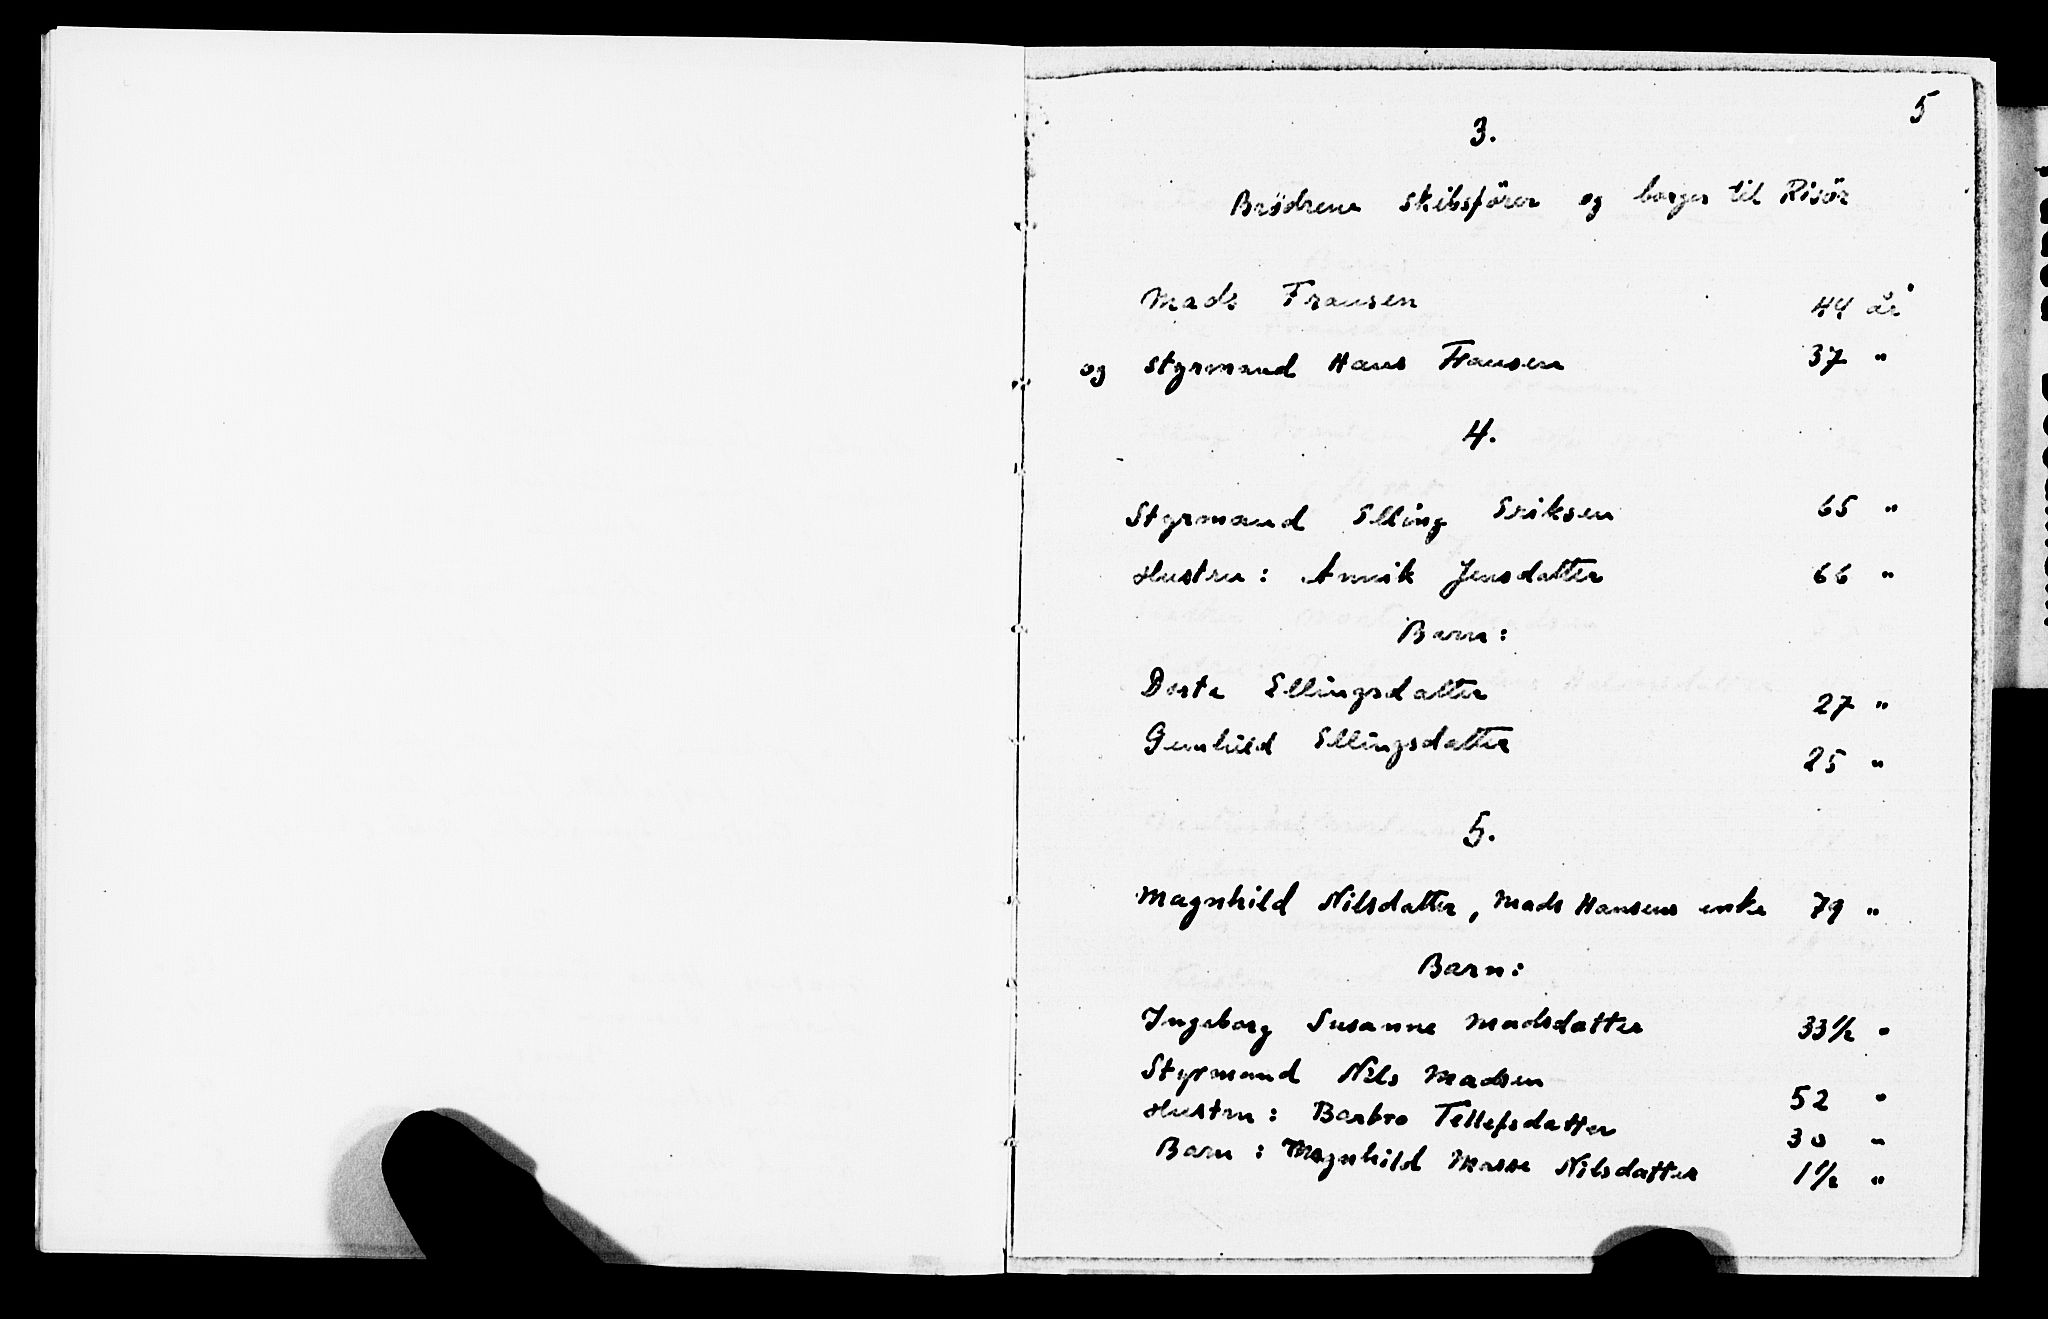 5
3.
Brödrene skibsförer og borger til Risör
Mads Fransen 44 år
og styrmand Hans Fransen 37 "
4.
Styrmand Elling Eriksen 65 "
Hustru: Annik Jensdatter 66 "
Barn:
Dorte Ellingsdatter 27 "
Gunhild Ellingsdatter 25 "
5.
Magnhild Nilsdatter, Mads Hansens enke 79 "
Barn:
Ingeborg Susanne Madsdatter 33 1/2 "
Styrmand Nils Madsen 52 "
Hustru: Barbro Tellefsdatter 30 "
Barn: Magnhild Masse Nilsdatter 1 1/2 "